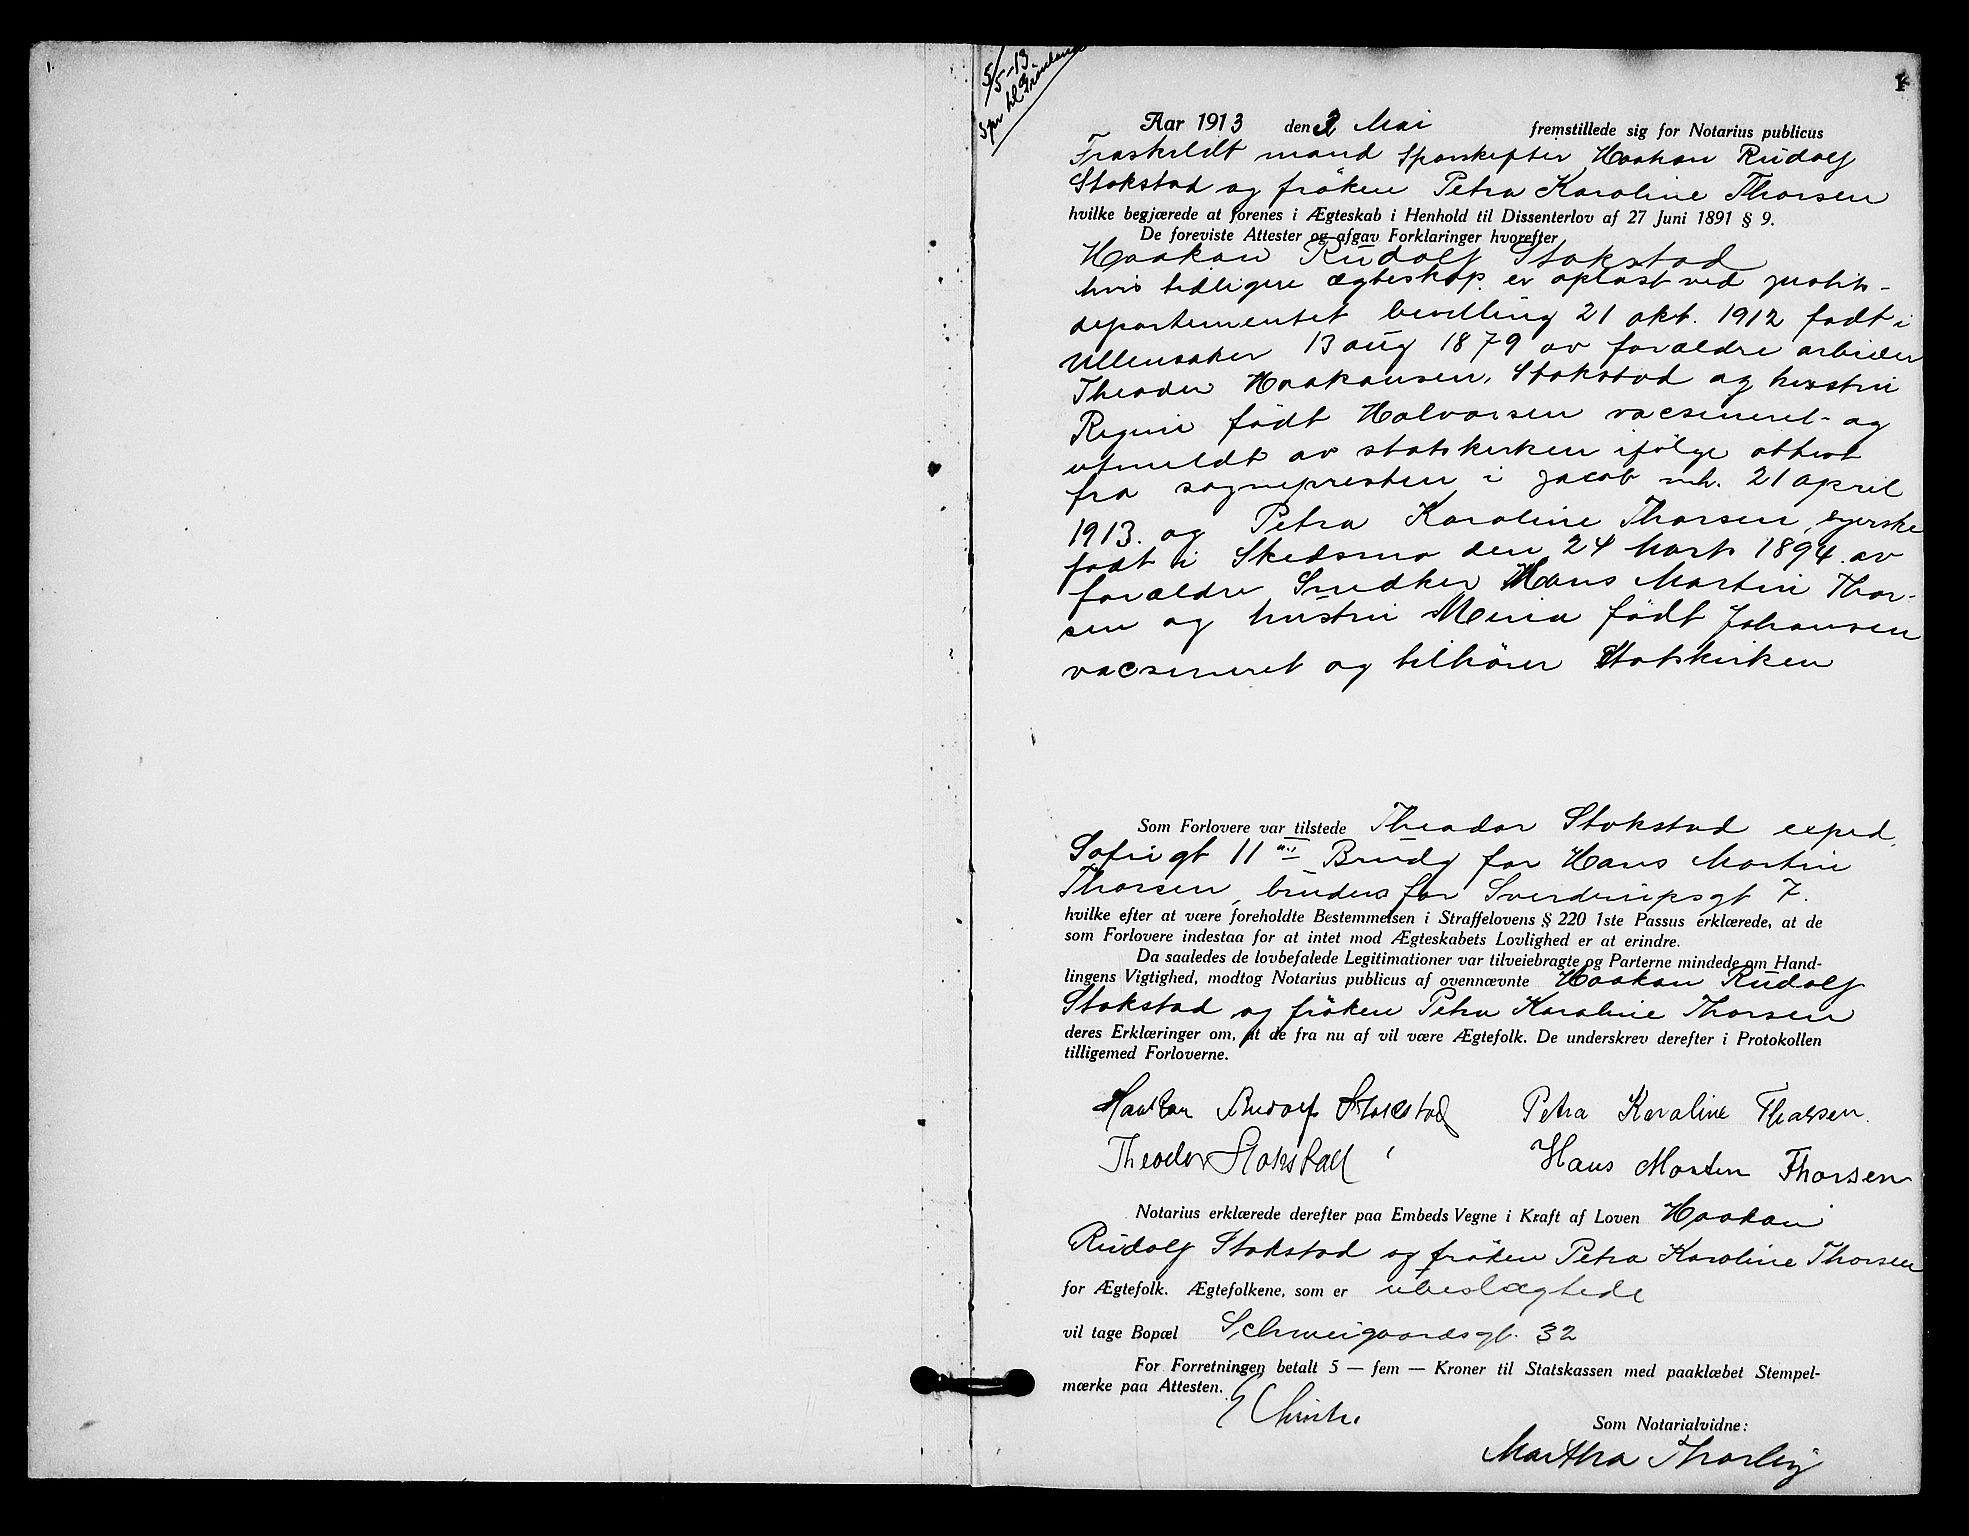 1.
5/5-13
Spr til Grönland
1
Aar 1913 den 3 Mai fremstillede sig for Notarius publicus
Fraskildt mand Sporskifter Haakon Rudolf
Stokstad og fröken Petra Karoline Thorsen
hvilke begjærede at forenes i Ægteskab i Henhold til Dissenterlov af 27 Juni 1891 § 9.
De foreviste Attester og afgav Forklaringer hvorefter
Haakon Rudolf Stokstad
hvis tidligere ægteskap er oplöst ved justits-
departementet bevilling 21 okt. 1912 födt i
Ullensaker 13 aug 1879 av forældre arbeider
Theodor Haakonsen Stokstad og hustru
Regine födt Halvorsen vacsineret og
utmeldt av statskirken ifölge attest
fra sognepresten i Jacob mh. 21 april
1913. og Petra Karoline Thorsen, syerske
födt i Skedsmo den 24 Marts 1894 av
forældre Snedker Hans Martin Thor-
sen og hustru Maria födt Johansen
vacsineret og tilhörer Statskirken
Som Forlovere var tilstede Theodor Stokstad exped.
Sofri gt 11 Brudg far Hans Martin
Thorsen, brudens far Sverdrupsgt 7.
hvilke efter at være foreholdte Bestemmelsen i Straffelovens § 220 1ste Passus erklærede, at de
som Forlovere indestaa for at intet mod Ægteskabets Lovlighed er at erindre.
Da saaledes de lovbefalede Legitimationer var tilveiebragte og Parterne mindede om Hand-
lingens Vigtighed, modtog Notarius publicus af ovennævnte Haakon Rudolf
Stokstad og fröken Petra Karoline Thorsen
deres Erklæringer om, at de fra nu af vil være Ægtefolk. De underskrev derefter i Protokollen
tilligemed Forloverne.
Haakon Rudolf Stokstad Petra Karoline Thorsen.
Theodor Stokstad Hans Morten Thorsen
Notarius erklærede derefter paa Embeds Vegne i Kraft af Loven Haakon
Rudolf Stokstad og fröken Petra Karoline Thorsen
for Ægtefolk. Ægtefolkene, som er ubeslægtede
vil tage Bopæl Schweigaardsgt. 32
For Forretningen betalt 5 — fem — Kroner til Statskassen med paaklæbet Stempel-
mærke paa Attesten.
E Christie
Som Notarialvidne:
Martha Thorbj